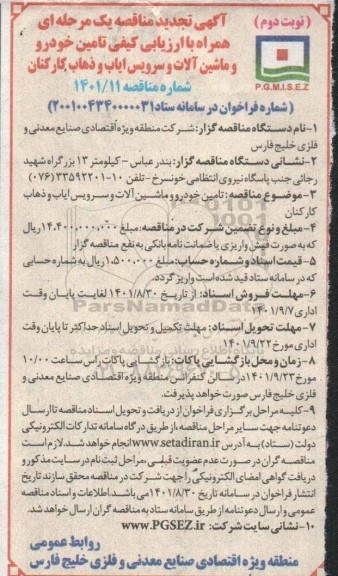 (نوبت دوم)
آگهی تجدید مناقصه یک مرحله ای
همراه با ارزیابی کیفی تامین خودرو
و ماشین آلات و سرویس ایاب و ذهاب کارکنان
شماره مناقصه ۱۴۰۱/۱۱
P.G.M.I.S.E.Z
(شماره فراخوان در سامانه ستاد ۲۰۰۱۰۰۴۳۴۰۰۰۰۰۳۱)
۱-نام دستگاه مناقصه گزار: شرکت منطقه ویژه اقتصادی صنایع معدنی و
فلزی خلیج فارس
۲-نشانی دستگاه مناقصه گزار: بندرعباس - کیلومتر ۱۳ بزرگراه شهید
رجائی جنب پاسگاه نیروی انتظامی خونسرخ - تلفن ۱۰-۳۳۵۹۲۲۰۱ (۰۷۶)
۳-موضوع مناقصه: تامین خودرو و ماشین آلات و سرویس ایاب و ذهاب
کارکنان
۴-مبلغ و نوع تضمین شرکت در مناقصه: مبلغ ۱۴.۴۰۰.۰۰۰.۰۰۰ ریال
که به صورت فیش واریزی یا ضمانت نامه بانکی به نفع مناقصه گزار
۵- قیمت اسناد و شماره حساب: مبلغ ۱.۵۰۰.۰۰۰ ریال به شماره حسابی
که در سامانه ستاد قید شده است واریز گردد.
۶-مهلت فروش اسناد: از تاریخ ۱۴۰۱/۸/۳۰ لغایت پایان وقت
اداری ۱۴۰۱/۹/۷
ParsNamadData
۷-مهلت تحویل اسناد: مهلت تکمیل و تحویل اسناد حداکثر تا پایان وقت
اداری مورخ ۱۴۰۱/۹/۲۲
۸-زمان و محل بازگشایی پاکات: بازگشایی پاکات راس ساعت ۱۰/۰۰
مورخ ۱۴۰۱/۹/۲۳ در سالن کنفرانس منطقه ویژه اقتصادی صنایع معدنی و
فلزی خلیج فارس صورت خواهد پذیرفت.
۹-کلیه مراحل برگزاری فراخوان از دریافت و تحویل اسناد مناقصه تا ارسال
دعوتنامه جهت سایر مراحل مناقصه، از طریق درگاه سامانه تدارکات الکترونیکی
دولت (ستاد) به آدرس www.setadiran.ir انجام خواهد شد. لازم است
مناقصه گران در صورت عدم عضویت قبلی، مراحل ثبت نام در سایت مذکور و
دریافت گواهی امضای الکترونیکی را جهت شرکت در مناقصه محقق سازند تاریخ
انتشار فراخوان در سامانه تاریخ ۱۴۰۱/۸/۳۰ می باشد. اطلاعات و اسناد مناقصه
عمومی و ارسال دعوتنامه از طریق سامانه ستاد به مناقصه گران ارسال خواهد شد.
۱۰-نشانی سایت شرکت: www.PGSEZ.ir
روابط عمومی
منطقه ویژه اقتصادی صنایع معدنی و فلزی خلیج فارس